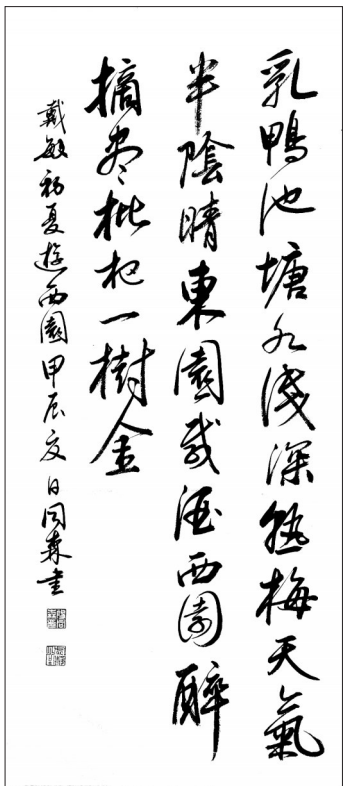 乳鴨池塘水淺深熟梅天氣
半陰晴東園載酒西園醉
摘盡枇杷一樹金
戴敏初夏遊西園甲辰夏日同森書